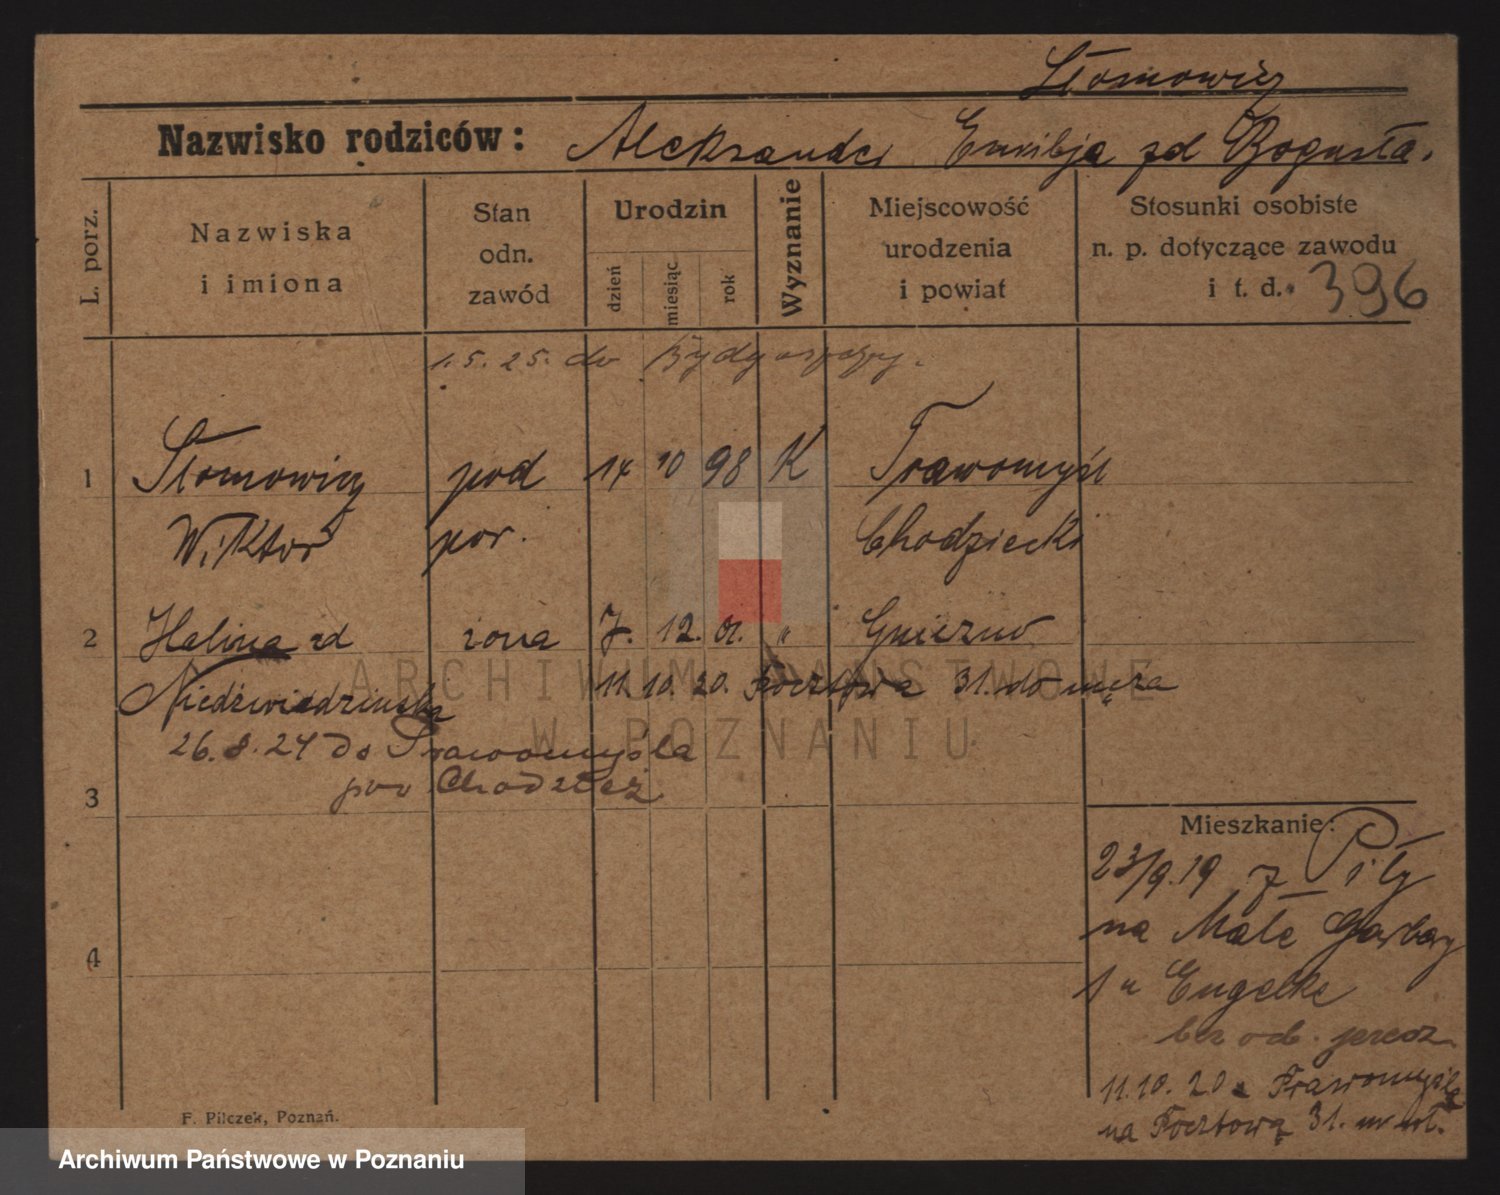 Słomowicz
Nazwisko rodziców: Aleksander Emilja zd Bogusła.
L. porz.
Nazwiska
i imiona
Stan
odn.
zawód
Urodzin
dzień
miesiąc
rok
Wyznanie
Miejscowość
urodzenia
i powiat
Stosunki osobiste
n. p. dotyczące zawodu
i t. d. 396
1.5.25. do Bydgoszczy.
1 Słomowicz pod 14 10 98 K Prawomyśl
Wiktor por. Chodzieski
2 Halina zd żona 7. 12. 01. " Gniezno
Niedźwiedzińska 11. 10. 20. Pocztowa 31. do męża
26.8.24 do Prawomyśla
pow Chodzież
3
4
Mieszkanie:
23/9.19 z Piły
na Małe Garbary
1 u Engelke
bez od.
11.10.20 z Prawomyśla
na Pocztową 31.
F. Pilczek, Poznań.
ARCHIWUM PAŃSTWOWE
W POZNANIU
Archiwum Państwowe w Poznaniu